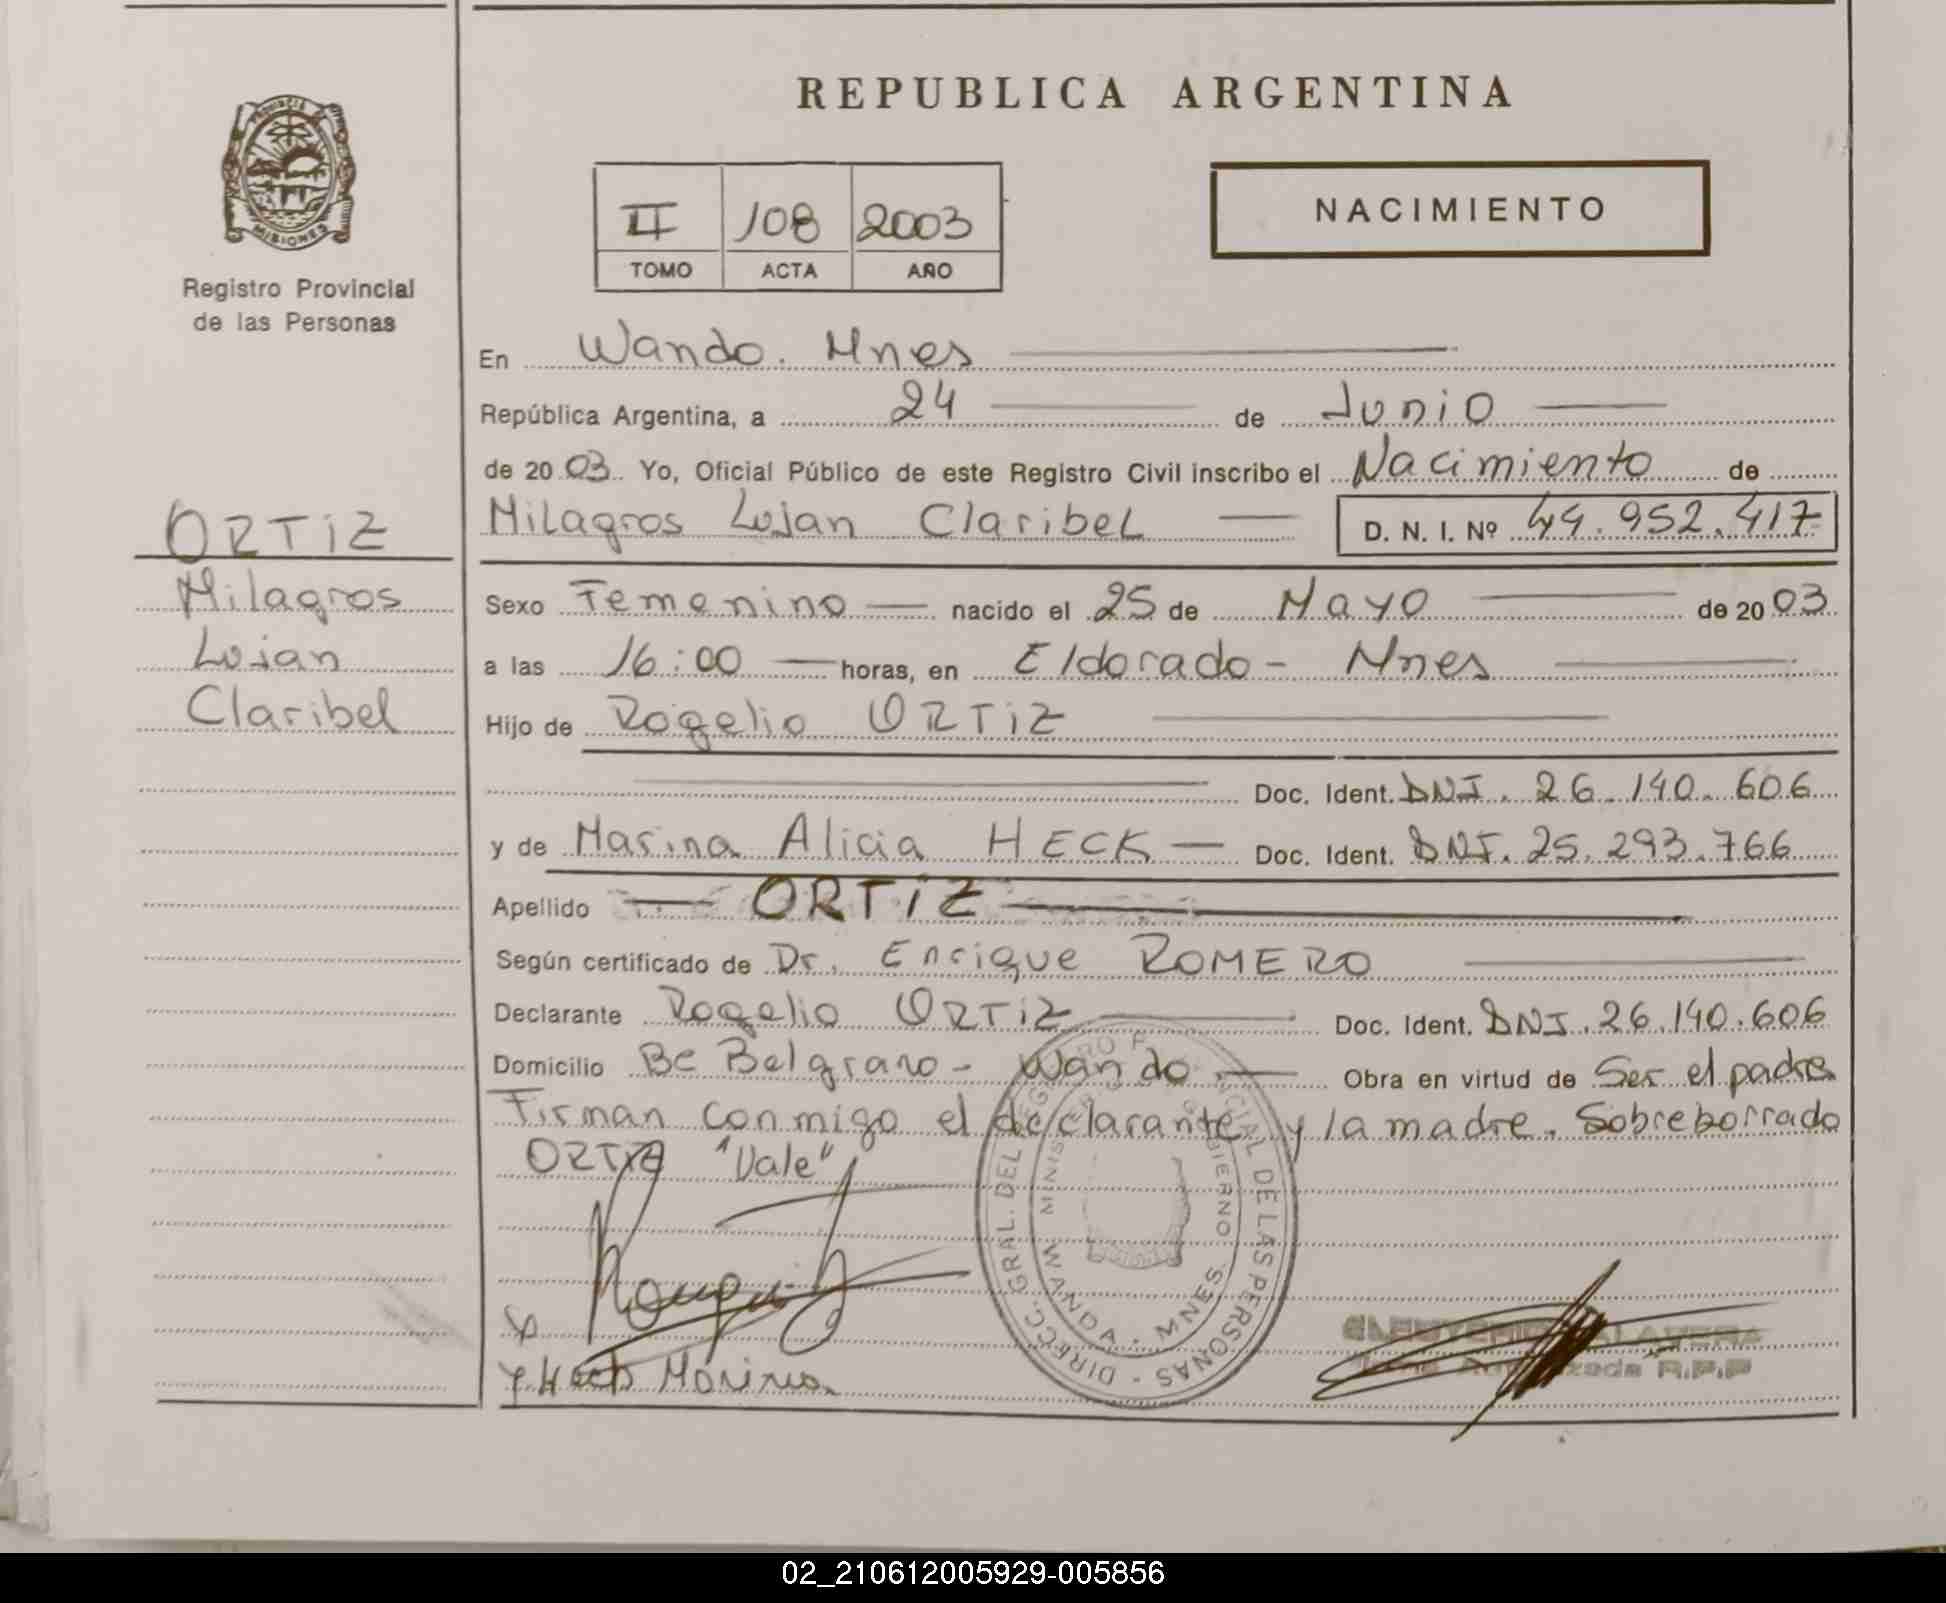 REPUBLICA ARGENTINA
PROVINCIA DE
MISIONES
Registro Provincial
de las Personas
II 108 2003
TOMO ACTA AÑO
NACIMIENTO
En Wanda. Mnes
República Argentina, a 24 de Junio
de 2003. Yo, Oficial Público de este Registro Civil inscribo el Nacimiento de
Milagros Lujan Claribel D. N. I. Nº 44.952.417
ORTIZ
Milagros
Lujan
Claribel
Sexo Femenino nacido el 25 de Mayo de 2003
a las 16:00 horas, en Eldorado - Mnes
Hijo de Rogelio ORTIZ
Doc. Ident. DNI. 26.140.606
y de Marina Alicia HECK Doc. Ident. DNI. 25.293.766
Apellido ORTIZ
Según certificado de Dr. Enrique ROMERO
Declarante Rogelio ORTIZ Doc. Ident. DNI. 26.140.606
Domicilio Bº Belgrano - Wanda Obra en virtud de Ser el padre
Firman conmigo el declarante y la madre. Sobreborrado
ORTIZ "Vale"
DIRECC. GRAL. DEL REGISTRO PROVINCIAL DE LAS PERSONAS
WANDA - MNES.
Heck Marina
R.P.P
02_210612005929-005856